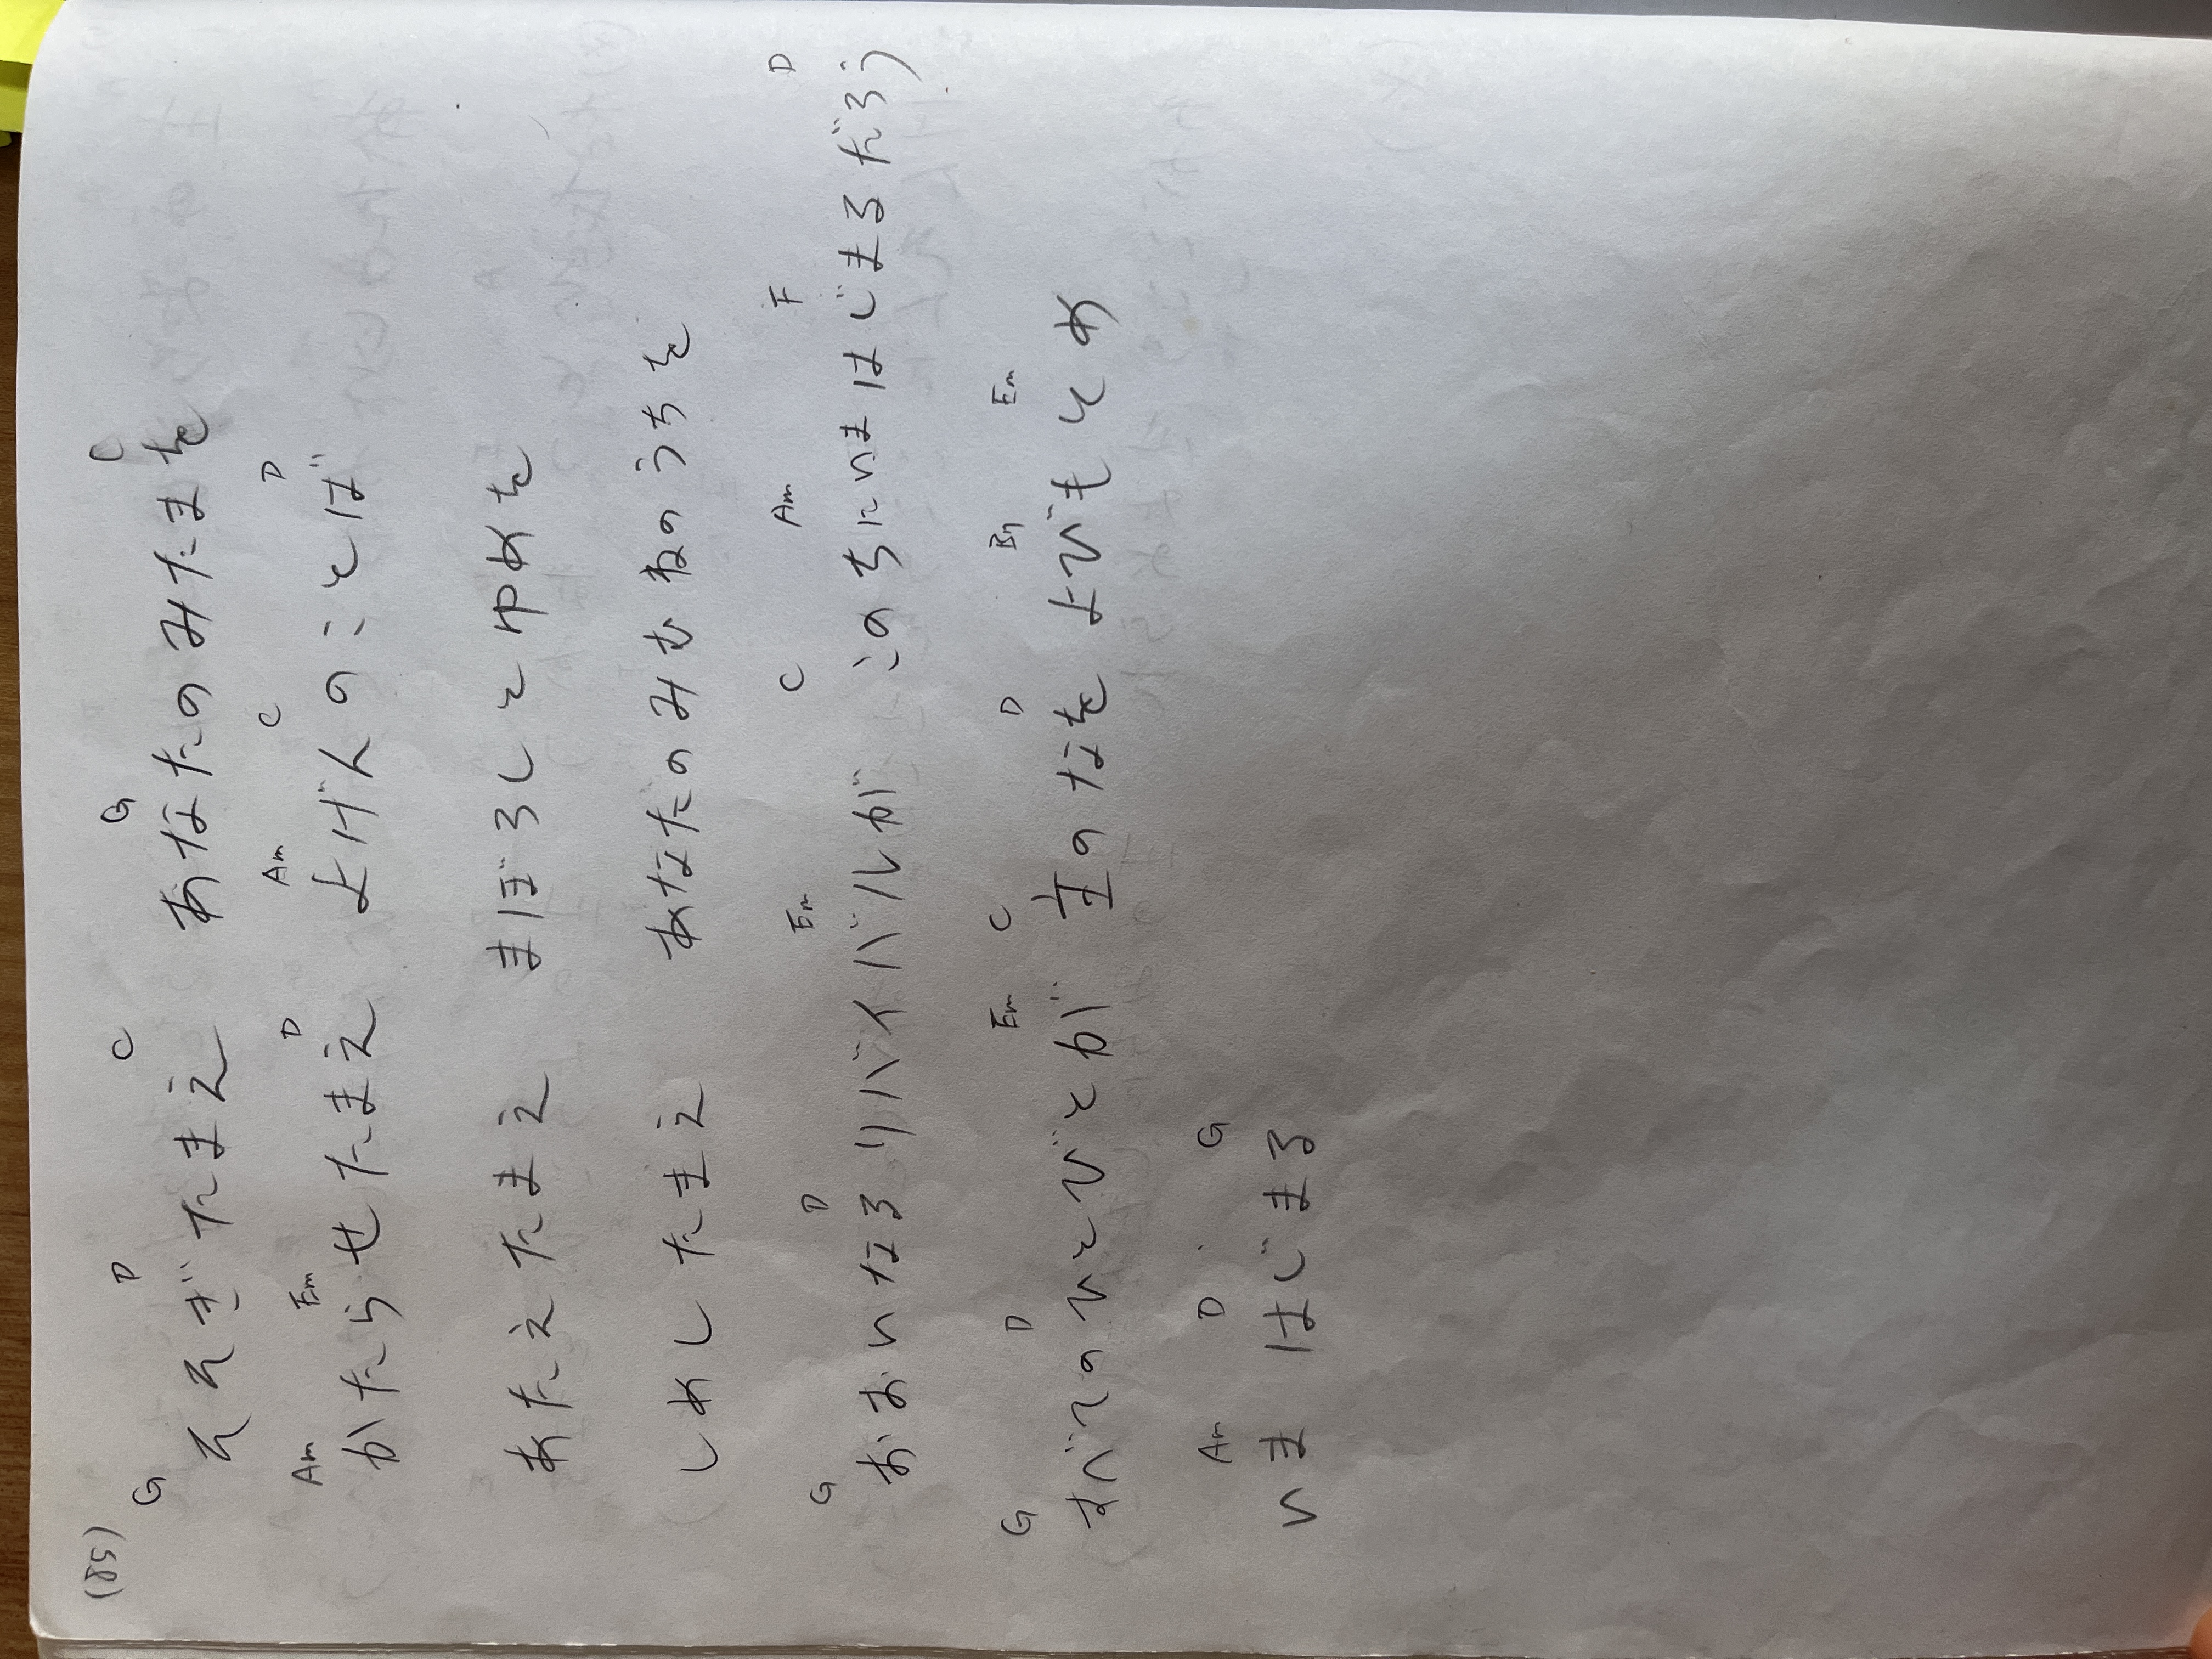 (85)
G D C G C
そそぎたまえ あなたのみたまを
Am Em D Am C D
かたらせたまえ よげんのことば
あたえたまえ まぼろしとゆめを
しめしたまえ あなたのみむねのうちを
G D Em C Am F D
おおいなるリバイバルが このちにいまはじまるだろう
G D Em C D Bm Em
すべてのひとびとが 主のなをよびもとめ
Am D G
いま はじまる